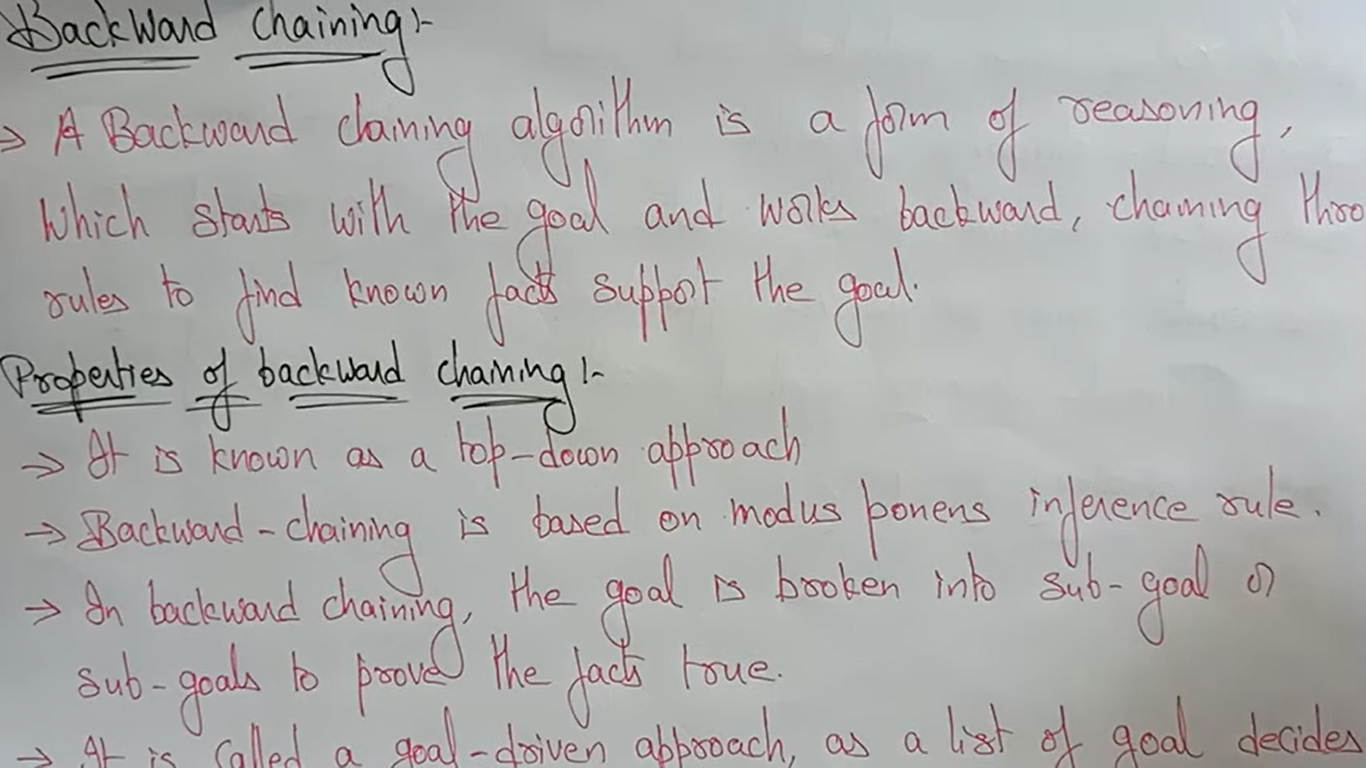 Backward chaining:-
→ A Backward chaining algorithm is a form of reasoning,
Which starts with the goal and works backward, chaining thro
rules to find known facts support the goal.
Properties of backward chaining:-
→ It is known as a top-down approach
→ Backward-chaining is based on modus ponens inference rule.
→ In backward chaining, the goal is broken into sub-goal or
sub-goals to prove the facts true.
→ It is called a goal-driven approach, as a list of goal decides